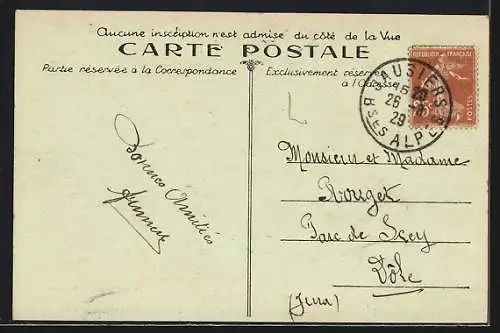 Aucune inscription n'est admise du côté de la Vue
CARTE POSTALE
Partie réservée à la Correspondance
Exclusivement réservé
à l'Adresse
JAUSIERS
15
26
29
BSES ALPES
POSTES
Bonnes Amitiés
Monsieur et Madame
Rouget
Parc de Scey
Dôle
(Jura)